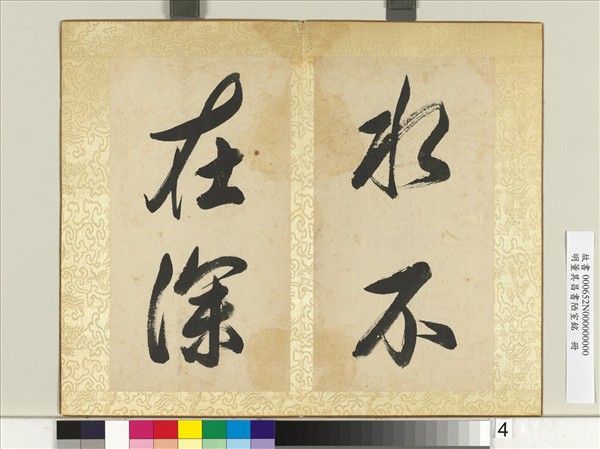 水不
在深
故書000652N000000000
明董其昌書陋室銘 冊
4